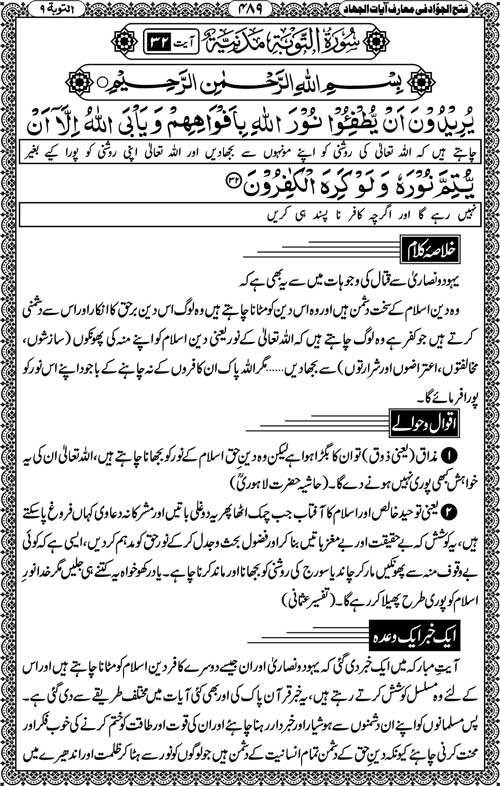 فتح الجوّاد فی معارف آیات الجهاد
۴۸۹
التوبة ۹
سُوْرَةُ التَّوْبَةِ مَدَنِيَّةٌ آیت ۳۲
بِسْمِ اللهِ الرَّحْمٰنِ الرَّحِيْمِ
يُرِيْدُوْنَ اَنْ يُّطْفِـُٔوْا نُوْرَ اللهِ بِاَفْوَاهِهِمْ وَيَاْبَى اللهُ اِلَّاۤ اَنْ
چاہتے ہیں کہ اللہ تعالیٰ کی روشنی کو اپنے مونہوں سے بجھادیں اور اللہ تعالیٰ اپنی روشنی کو پورا کیے بغیر
يُّتِمَّ نُوْرَهٗ وَلَوْ كَرِهَ الْكٰفِرُوْنَ ۳۲
نہیں رہے گا اور اگرچہ کافر نا پسند ہی کریں
خلاصۂ کلام
یہود ونصاریٰ سے قتال کی وجوہات میں سے یہ بھی ہے کہ
وہ دین اسلام کے سخت دشمن ہیں اور وہ اس دین کو مٹانا چاہتے ہیں وہ لوگ اس دین برحق کا انکار اور اس سے دشمنی
کرتے ہیں جو کفر ہے وہ لوگ چاہتے ہیں کہ اللہ تعالیٰ کے نور یعنی دین اسلام کو اپنے منہ کی پھونکوں (سازشوں،
مخالفتوں، اعتراضوں اور شرارتوں) سے بجھادیں......مگر اللہ پاک ان کافروں کے نہ چاہنے کے باجود اپنے اس نور کو
پورا فرمائے گا۔
اقوال وحوالے
۱ مذاق (یعنی ذوق) تو ان کا بگڑا ہوا ہے لیکن وہ دین حق اسلام کے نور کو بجھانا چاہتے ہیں، اللہ تعالیٰ ان کی یہ
خواہش کبھی پوری نہیں ہونے دے گا۔ (حاشیہ حضرت لاہوریؒ)
۲ یعنی توحید خالص اور اسلام کا آفتاب جب چمک اٹھا پھر یہ دوغلی باتیں اور مشرکانہ دعاوی کہاں فروغ پاسکتے
ہیں، یہ کوشش کہ بے حقیقت اور بے مغز باتیں بنا کر اور فضول بحث وجدل کر کے نور حق کو مدہم کردیں، ایسی ہے کہ کوئی
بے وقوف منہ سے پھونکیں مار کر چاند یا سورج کی روشنی کو بجھانا اور ماند کرنا چاہے۔ یادرکھو خواہ یہ کتنے ہی جلیں مگر خدا نور
اسلام کو پوری طرح پھیلا کر رہے گا۔ (تفسیر عثمانی)
ایک خبر ایک وعدہ
آیتِ مبارکہ میں ایک خبر دی گئی کہ یہود ونصاریٰ اور ان جیسے دوسرے کافر دین اسلام کو مٹانا چاہتے ہیں اور اس
کے لئے وہ مسلسل کوشش کرتے رہتے ہیں، یہ خبر قرآن پاک کی اور بھی کئی آیات میں مختلف طریقے سے دی گئی ہے۔
پس مسلمانوں کو اپنے ان دشمنوں سے ہوشیار اور خبردار رہنا چاہئے اور ان کی قوت اور طاقت کو ختم کرنے کی خوب فکر اور
محنت کرنی چاہئے کیونکہ دین حق کے دشمن تمام انسانیت کے دشمن ہیں جو لوگوں کو نور سے ہٹا کر ظلمت اور اندھیرے میں